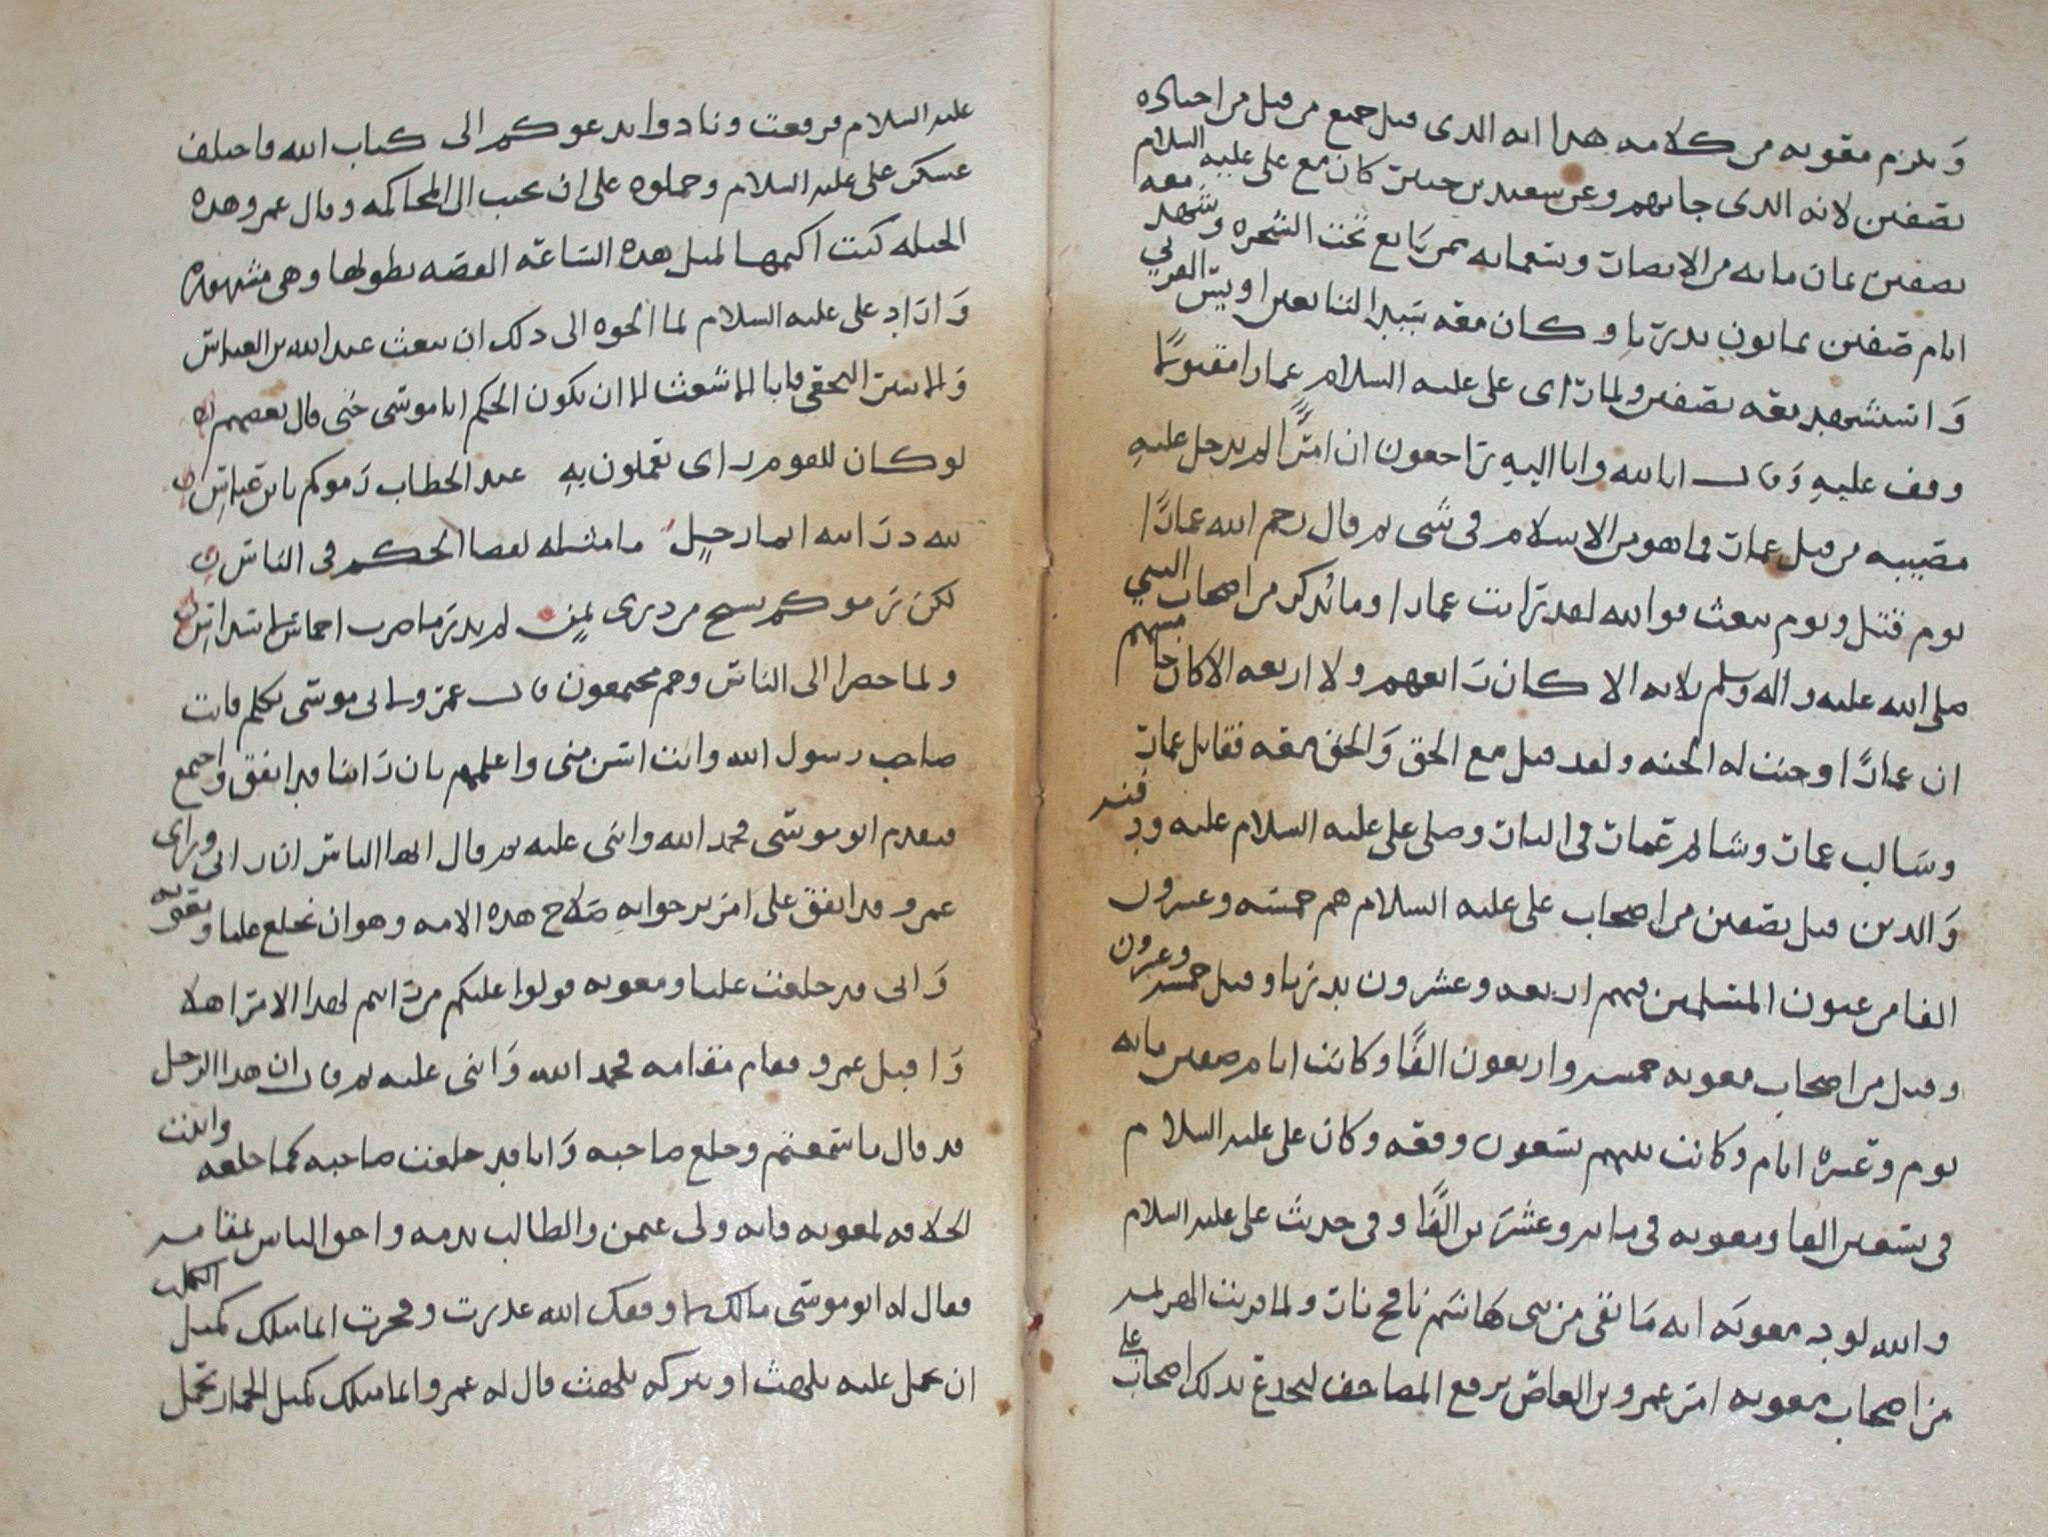 ويلزم معويه من كلامه هذا انه الذي قتل جميع من قتل من اصحابه
بصفين لانه الذي جا بهم وعن سعيد بن جبير كان مع علي عليه السلام
بصفين ثمان مايه من الانصار وتسعمايه ممن بايع تحت الشجره وشهد معه
ايام صفين ثمانون بدريا وكان معه سيد التابعين اويس القرني
واستشهد معه بصفين ولما راى علي عليه السلام عمارا مقتولا
وقف عليه وقال انا لله وانا اليه راجعون ان امرًا لم يدخل عليه
مصيبه من قتل عمار فما هو من الاسلام في شي ثم قال رحم الله عمارًا
يوم قتل ويوم يبعث فوالله لقد رايت عمارا وما يُذكر من اصحاب النبي
صلى الله عليه واله وسلم ثلاثه الا كان رابعهم ولا اربعه الا كان خامسهم
ان عمارًا وجبت له الجنه ولقد قتل مع الحق والحق معه فقاتل عمار
وسالب عمار وشاتم عمار في النار وصلى علي عليه السلام عليه ودفنه
والذين قتل بصفين من اصحاب علي عليه السلام هم خمسه وعشرون
الفا من عيون المسلمين منهم اربعه وعشرون بدريا وقيل خمسه وعشرون
وقتل من اصحاب معويه خمسه واربعون الفًا وكانت ايام صفين مايه
يوم وعشره ايام وكانت بينهم تسعون وقعه وكان علي عليه السلام
في تسعين الفا ومعويه في مايه وعشرين الفًا وفي حديث علي عليه السلام
والله لود معويه انه ما بقي من بني هاشم نافخ نار ولما قربت الهزيمه
من اصحاب معويه امر عمرو بن العاص برفع المصاحف ليخدع بذلك اصحاب علي
عليه السلام فرفعت ونادوا ندعوكم الى كتاب الله فاختلف
عسكر علي عليه السلام وحملوه على ان يجيب الى المحاكمه وقال عمرو هذه
الحيله كنت اكتمها لمثل هذه الساعه القصه بطولها وهي مشهوره
واراد علي عليه السلام لما الجوه الى ذلك ان يبعث عبد الله بن العباس
والاشتر النخعي فابا الاشعث الا ان يكون الحكم ابا موسى حتى قال بعضهم
لو كان للقوم راى يعملون به عند الخطاب رموكم بابن عباس
لله در ابيه ايما رجل ما مثله لفصا الحكم في الناس
لكن رموكم بشيخ من ذوي يمن لم يدر ما ضرب اخماس لاسداس
ولما حضرا الى الناس وهم مجتمعون قال عمرو لابي موسى تكلم فانت
صاحب رسول الله وانت اسن مني واعلمهم بان راينا قد اتفق واجتمع
فتقدم ابو موسى فحمد الله واثنى عليه ثم قال ايها الناس ان رايي وراي
عمرو قد اتفق على امر نرجوا به صلاح هذه الامه وهو ان نخلع عليا ومعويه
واني قد خلعت عليا ومعويه فولوا عليكم من رايتم لهذا الامر اهلا
واقبل عمرو فقام مقامه فحمد الله واثنى عليه ثم قال ان هذا الرجل
قد قال ما سمعتم وخلع صاحبه وانا قد خلعت صاحبه كما خلعه واثبت
الخلافه لمعويه فانه ولى عثمن والطالب بدمه واحق الناس بمقامه
فقال له ابو موسى مالك لا وفقك الله غدرت وفجرت انما مثلك كمثل الكلب
ان تحمل عليه يلهث او تتركه يلهث قال له عمرو انما مثلك كمثل الحمار يحمل